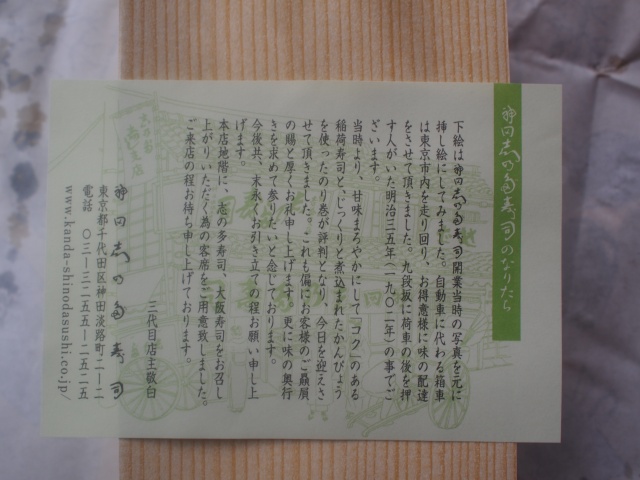 神田志乃多寿司のなりたち
下絵は神田志乃多寿司開業当時の写真を元に
挿し絵にしてみました。自動車に代わる箱車
は東京市内を走り回り、お得意様に味の配達
をさせて頂きました。九段坂に荷車の後を押
す人がいた明治三五年(一九〇二年)の事でご
ざいます。
当時より、甘味まろやかにして「コク」のある
稲荷寿司と、じっくりと煮込まれたかんぴょう
を使ったのり巻が評判となり、今日を迎えさ
せて頂きました。これも偏にお客様のご贔屓
の賜と厚くお礼申し上げます。更に味の奥行
きを求めて参りたいと念じております。
今後共、末永くお引き立ての程お願い申し上
げます。
本店地階に、志の多寿司、大阪寿司をお召し
上がりいただく為の客席をご用意致しました。
ご来店の程お待ち申し上げております。
三代目店主敬白
神田志乃多寿司
東京都千代田区神田淡路町二ー二
電話 〇三ー三二五五ー二五二五
www.kanda-shinodasushi.co.jp/